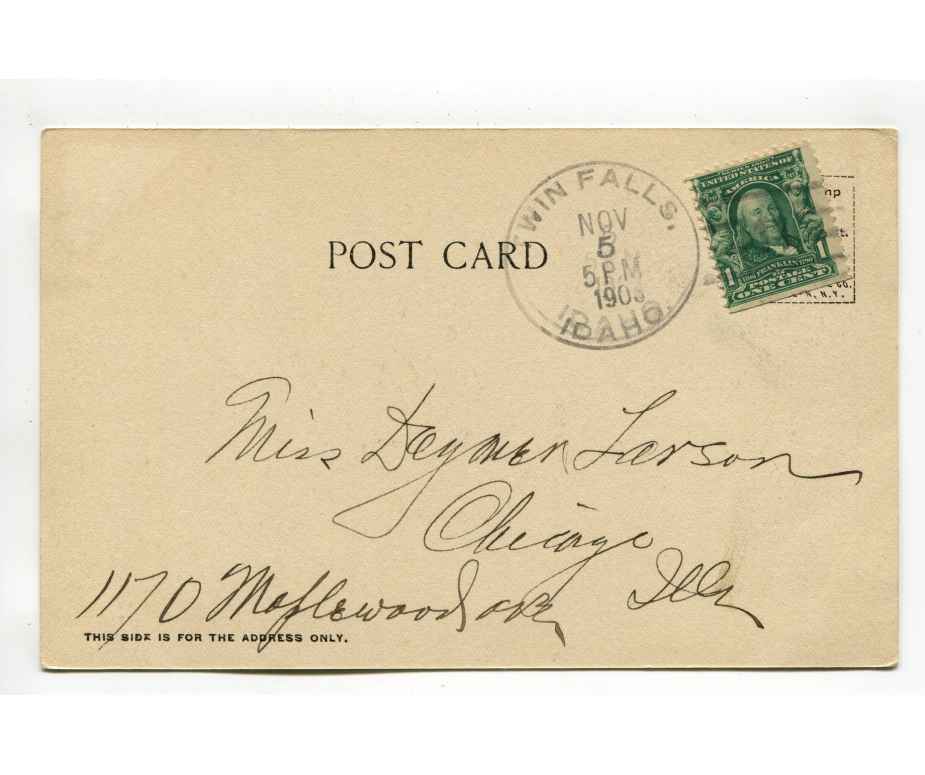 POST CARD
TWIN FALLS.
NOV
5
5 P.M
190
IDAHO.
SERIES 1902
UNITED STATES OF
AMERICA
1706 FRANKLIN 1790
1 POSTAGE 1
ONE CENT
CO.
N.Y.
Miss Larson
Chicago
Ills
1170 Maplewood ave
THIS SIDE IS FOR THE ADDRESS ONLY.